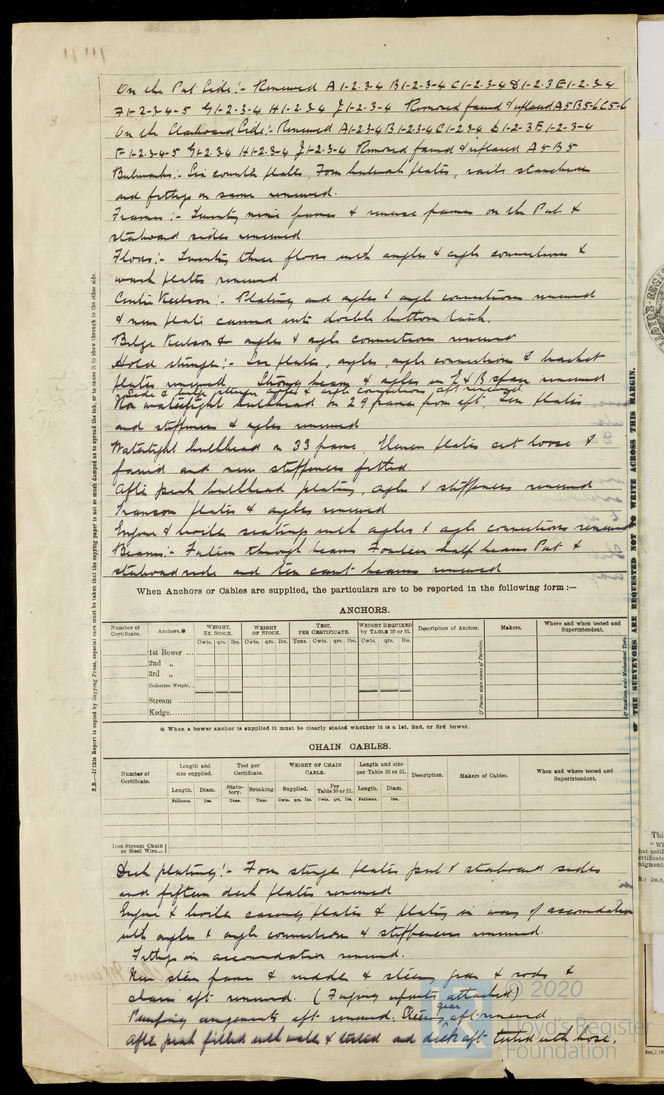 On the Port Side:- Renewed A1-2-3-4 B1-2-3-4 C1-2-3-4 D1-2-3 E1-2-3-4
F1-2-3-4-5 G1-2-3-4 H1-2-3-4 J1-2-3-4 Removed faired & replaced A5 B5-6 C5-6
On the Starboard Side:- Renewed A1-2-3-4 B1-2-3-4 C1-2-3-4 D1-2-3 E1-2-3-4
F-1-2-3-4-5 G1-2-3-4 H1-2-3-4 J1-2-3-4 Removed faired & replaced A5 B5
Bulwarks:- Six counter plates, Four bulwark plates, rails stanchions
and fittings on same renewed.
Frames:- Twenty nine frames & reverse frames on the Port &
starboard sides renewed
Floors:- Twenty three floors with angles & angle connections &
wash plates renewed
Centre Keelson:- Plating and angles & angle connections renewed
& new plate carried into double bottom tank.
Bilge Keelson & angles & angle connections renewed
Hold stringer:- Six plates, angles, angle connections & bracket
plates renewed. Strong beams & angles in E & B space renewed
Side & angles & angle connections aft renewed
Non watertight bulkhead on 29 frame from aft. Ten plates
and stiffeners & angles renewed
Watertight bulkhead on 33 frame. Eleven plates cut loose &
faired and new stiffeners fitted.
After peak bulkhead plating, angles & stiffeners renewed
Transom plates & angles renewed
Engine & boiler seatings with angles & angle connections renewed
Beams:- through beams Fourteen half beams Port &
starboard side and ten cant beams renewed
When Anchors or Cables are supplied, the particulars are to be reported in the following form:—
ANCHORS.
Number of Certificate. Anchors.* WEIGHT, EX. STOCK. WEIGHT OF STOCK. TEST, PER CERTIFICATE. WEIGHT REQUIRED by TABLE 30 or 31. Description of Anchor. Makers. Where and when tested and Superintendent.
Cwts. qrs. lbs. Cwts. qrs. lbs. Tons. Cwts. qrs. lbs. Cwts. qrs. lbs.
1st Bower ...
2nd „
3rd „
Collective Weight.
Stream ......
Kedge.......
* When a bower anchor is supplied it must be clearly stated whether it is a 1st, 2nd, or 3rd bower.
CHAIN CABLES.
Number of Certificate. Length and size supplied. Test per Certificate. WEIGHT OF CHAIN CABLE. Length and size per Table 30 or 31. Description. Makers of Cables. When and where tested and Superintendent.
Length. Diam. Statutory. Breaking. Supplied. Per Table 30 or 31. Length. Diam.
Fathoms. Ins. Tons. Tons. Cwts. qrs. lbs. Cwts. qrs. lbs. Fathoms. Ins.
Iron Stream Chain or Steel Wire...
Deck plating:- Four stringer plates port & starboard sides
and fifteen deck plates renewed
Engine & boiler casing plates & plating in way of accomodation
with angles & angle connections & stiffeners renewed.
Fittings in accomodation renewed.
New stern frame & rudder & steering gear & rods &
chains aft renewed. (Forging reports attached)
Pumping arrangements aft renewed. Steering gear aft renewed
After peak filled with water & tested and deck aft tested with hose.
N.B.—If this Report is copied by Copying Press, especial care must be taken that the copying paper is not so much damped as to spread the Ink, or to cause it to show through to the other side.
THE SURVEYORS ARE REQUESTED NOT TO WRITE ACROSS THIS MARGIN.
© 2020
Lloyd's Register
Foundation